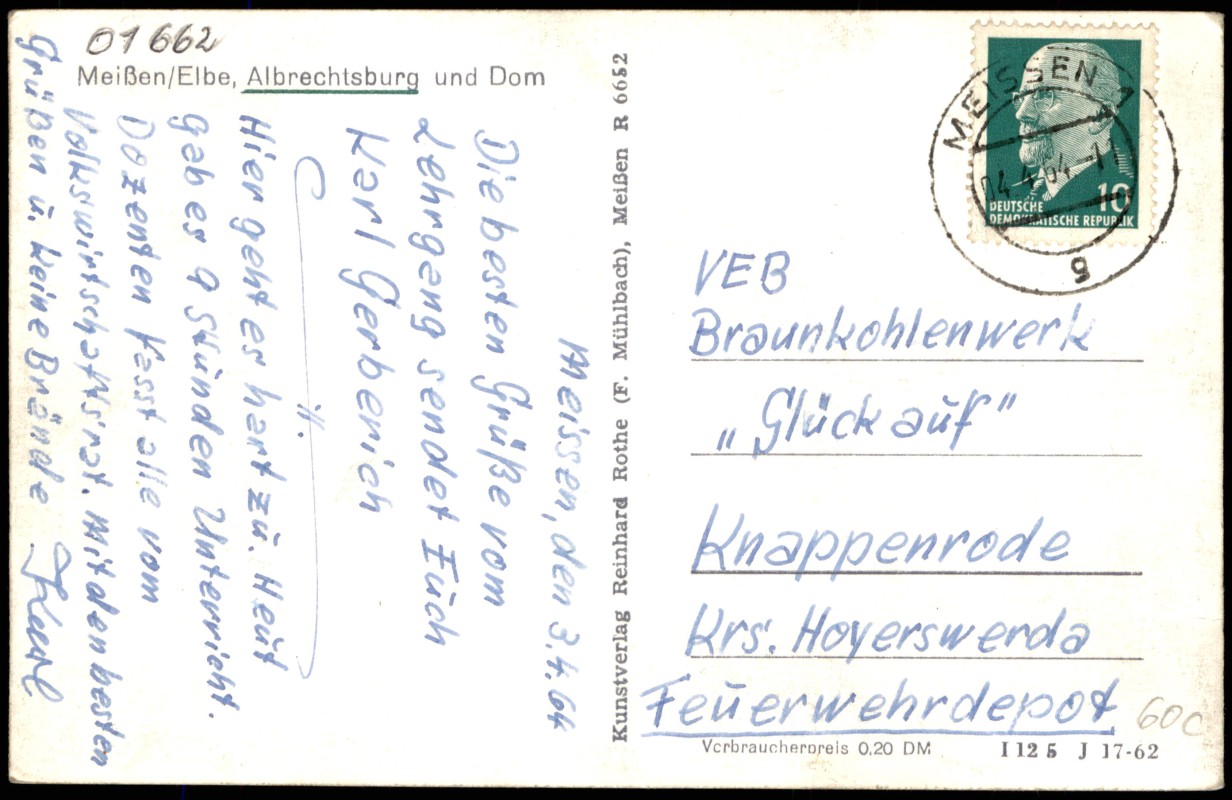 01662
Meißen/Elbe, Albrechtsburg und Dom
Meissen, den 3.4.64
Die besten Grüße vom
Lehrgang sendet Euch
Karl Gerberich
Hier geht es hart zu. Heut
gab es 9 Stunden Unterricht.
Dozenten fasst alle vom
Volkswirtschaftsrat. Mit den besten
Grüßen u. keine Brände
Kunstverlag Reinhard Rothe (F. Mühlbach), Meißen R 6652
MEISSEN 1
g
10
DEUTSCHE
DEMOKRATISCHE REPUBLIK
VEB
Braunkohlenwerk
„Glückauf"
Knappenrode
Krs. Hoyerswerda
Feuerwehrdepot
60c
Verbraucherpreis 0,20 DM
I 12 5 J 17-62